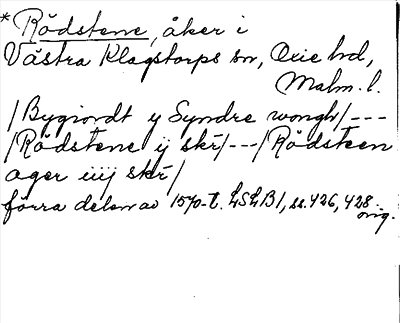 * Rödstene, åker i
Västra Klagstorps sn, Oxie hd,
Malm. l.
/Bygiordt y Syndre wongh/---
/Rödstene ij skr/---/Rödsteen
ager iiij skr/
förra delen av 1570-t. LSLB1, ss. 426, 428
orig.